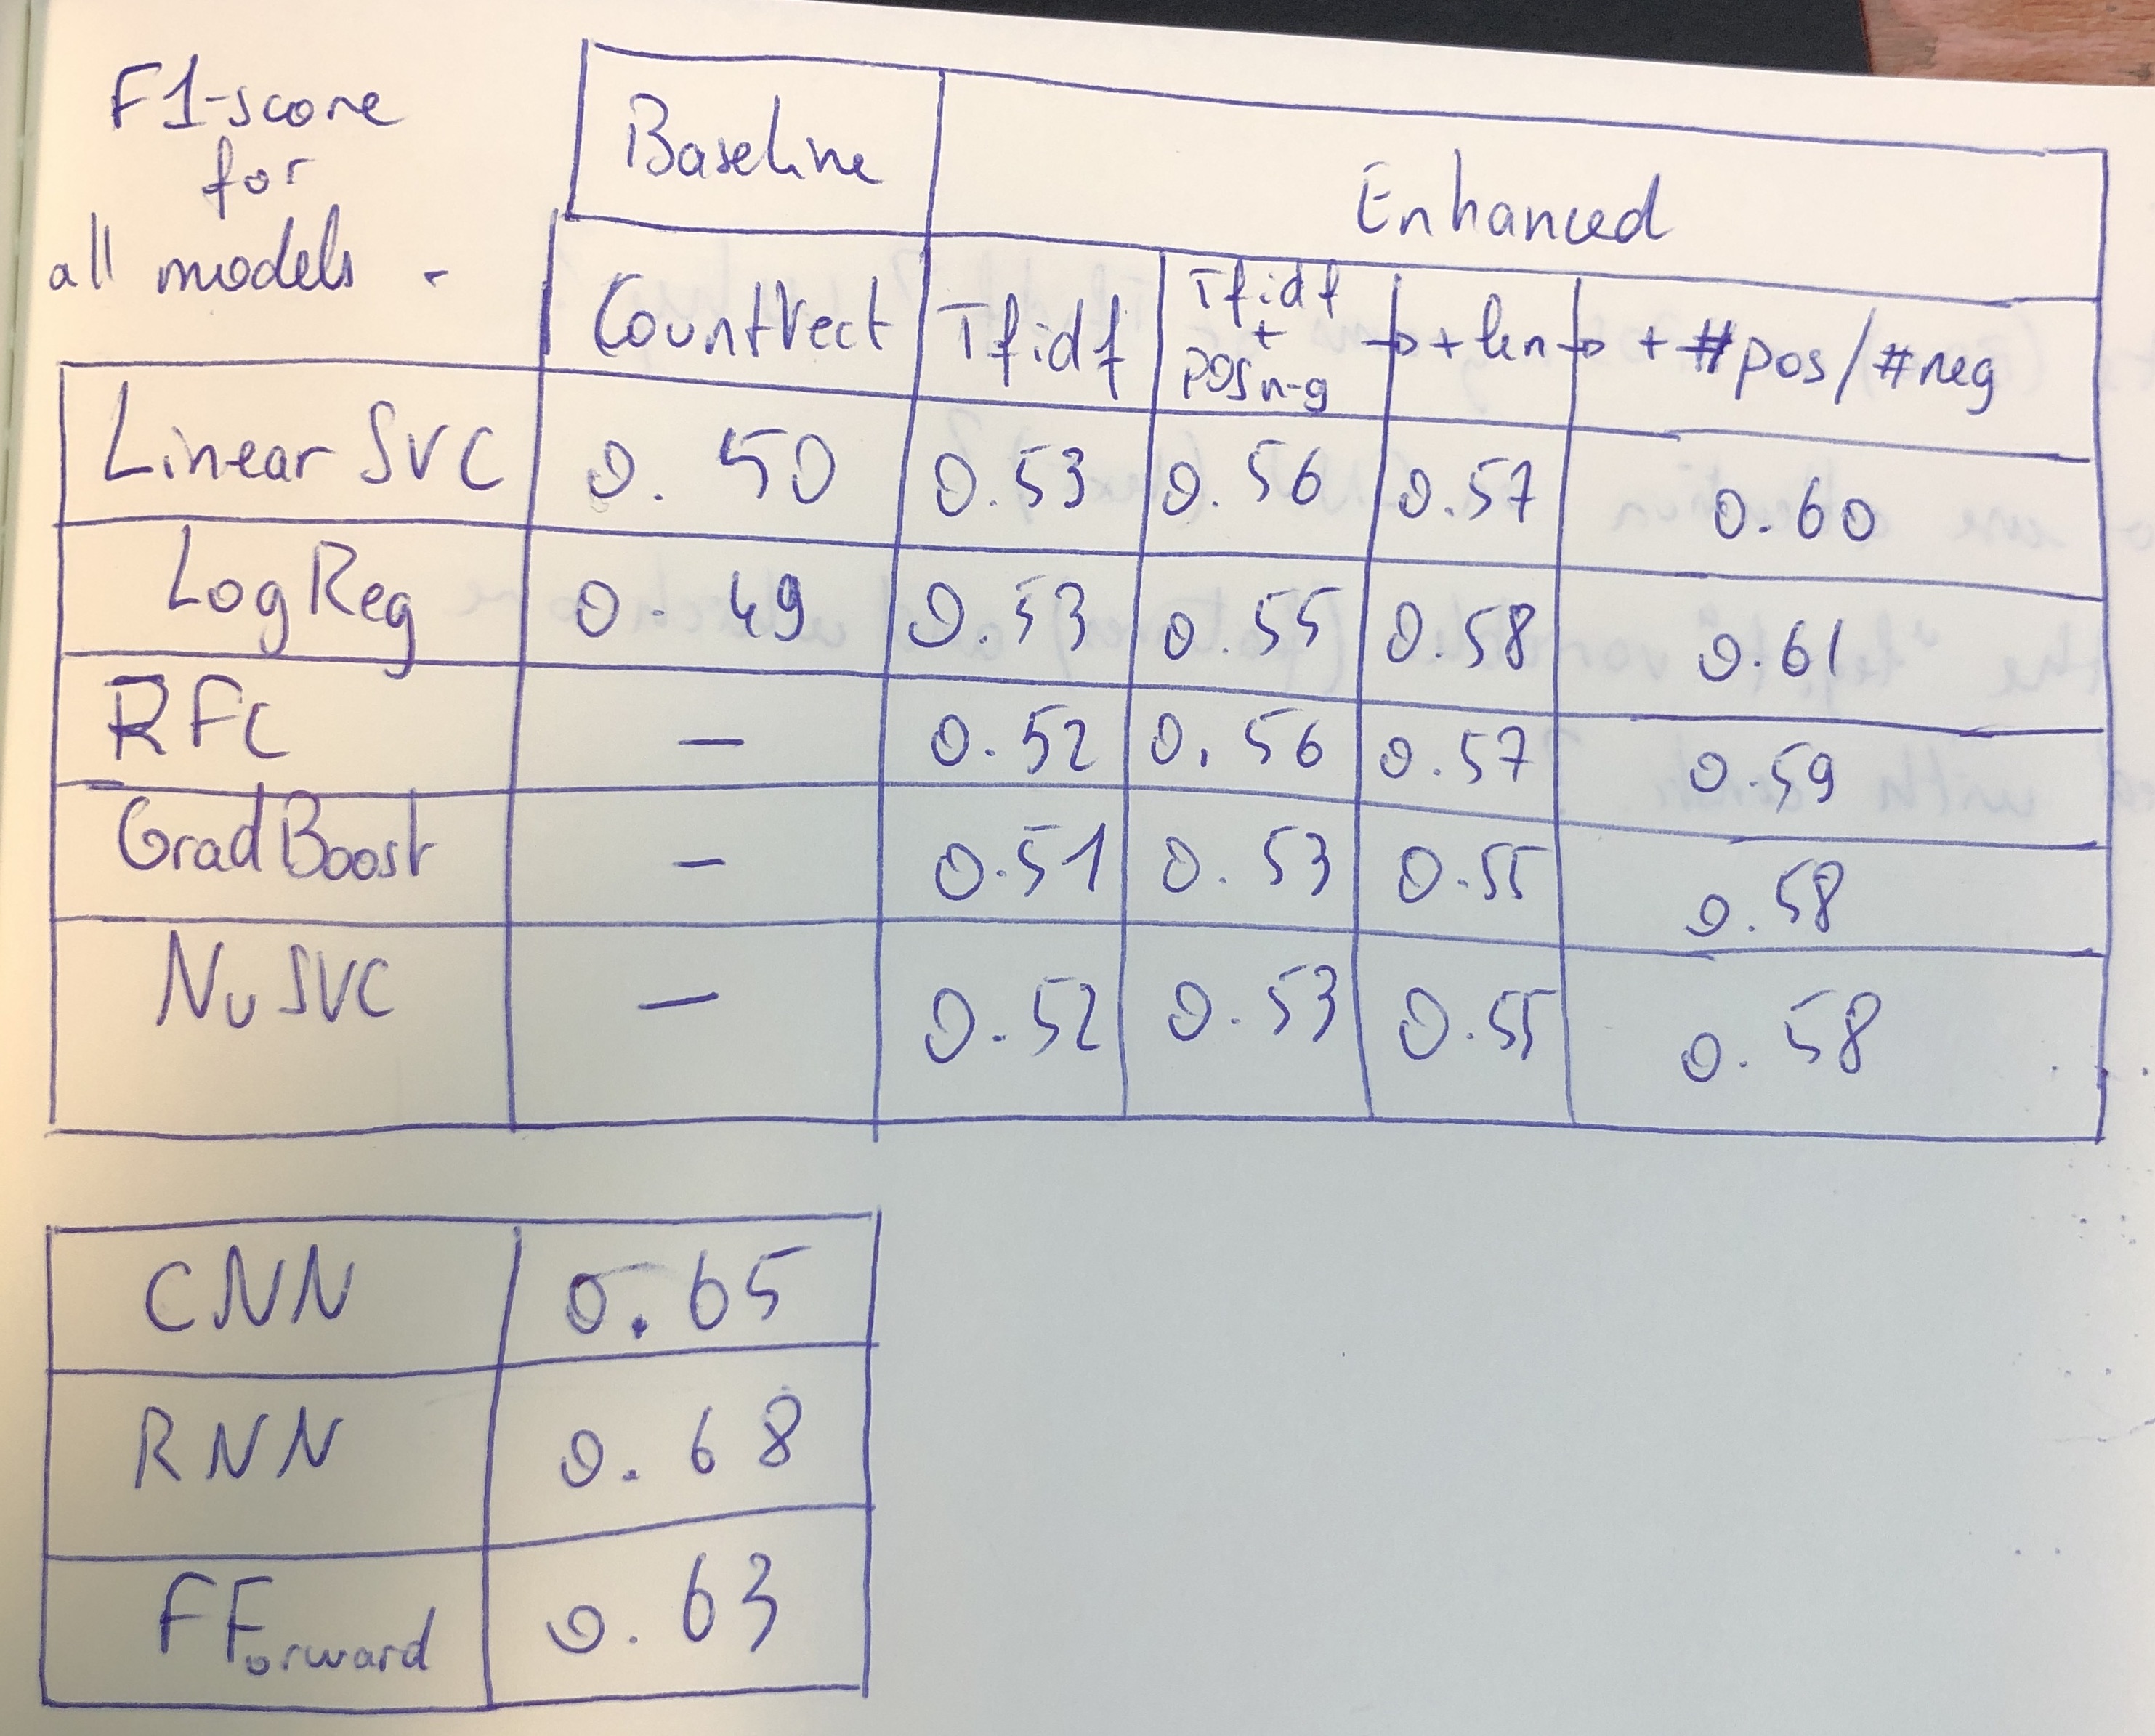 F1-score
for
all models -
Baseline
Enhanced
CountVect
Tfidf
Tfidf
+
POS n-g
→ + len
→ + #pos/#neg
Linear SVC 0.50 0.53 0.56 0.57 0.60
LogReg 0.49 0.53 0.55 0.58 0.61
RFC — 0.52 0.56 0.57 0.59
GradBoost — 0.51 0.53 0.55 0.58
NuSVC — 0.52 0.53 0.55 0.58
CNN 0.65
RNN 0.68
FForward 0.63